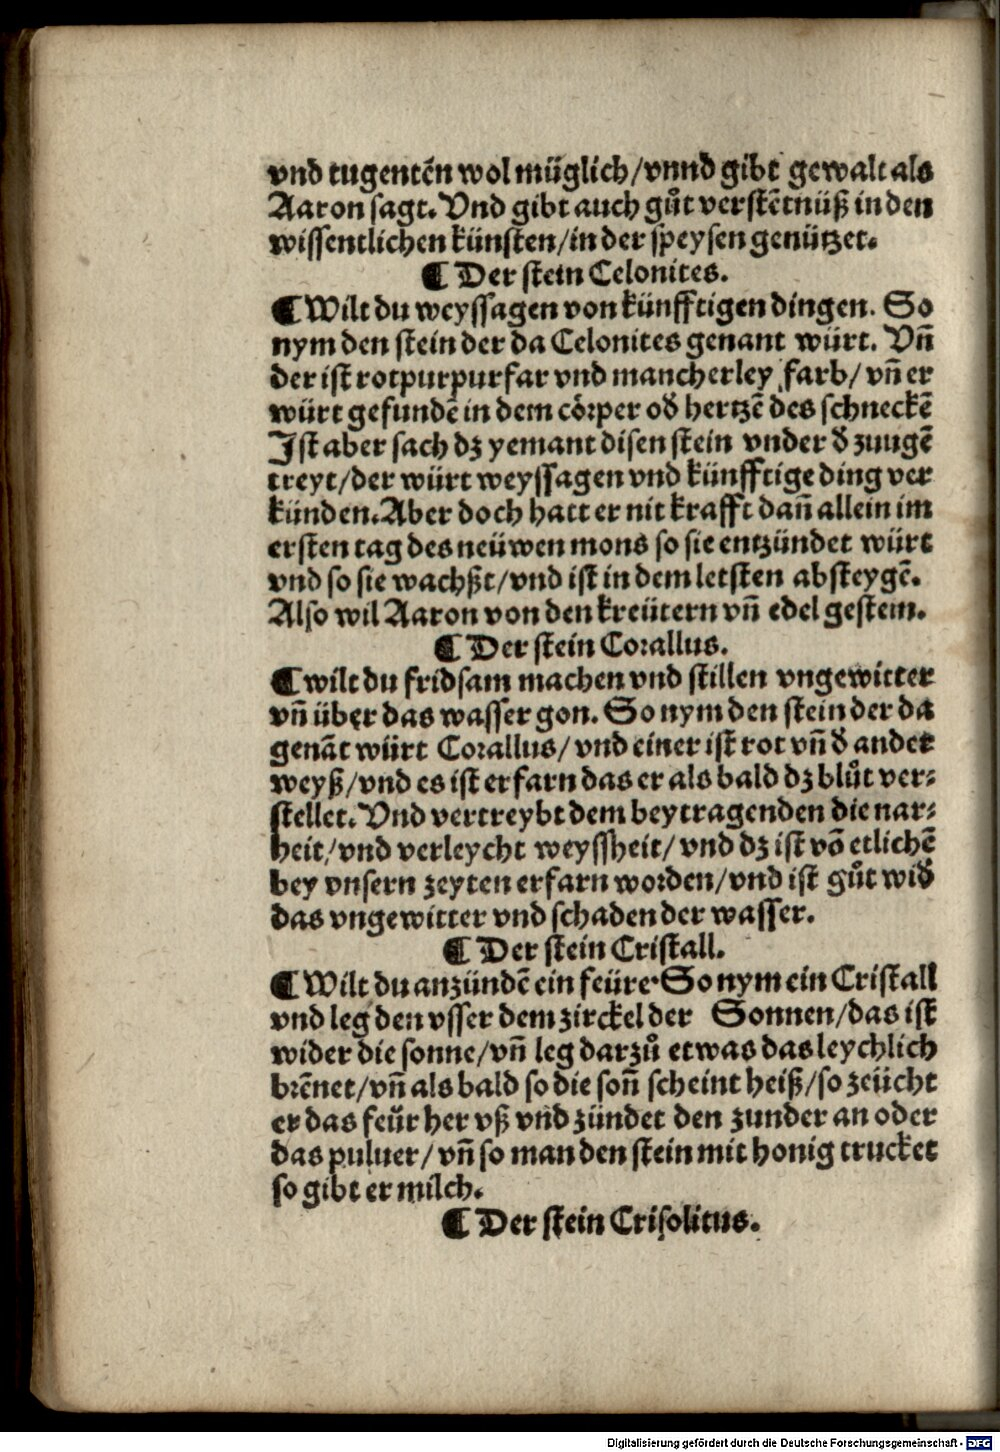 vnd tugentẽn wol müglich/vnnd gibt gewalt als
Aaron sagt. Vnd gibt auch gůt verstẽtnüß in den
wissentlichen künsten/in der speysen genützet.
¶ Der stein Celonites.
¶ Wilt du weyssagen von künfftigen dingen. So
nym den stein der da Celonites genant würt. Vñ
der ist rotpurpurfar vnd mancherley farb/ vñ er
würt gefundẽ in dem cörper oð hertzẽ des schneckẽ
Ist aber sach dz yemant disen stein vnder ð zungẽ
treyt/der würt weyssagen vnd künfftige ding ver
künden. Aber doch hatt er nit krafft dañ allein im
ersten tag des neüwen mons so sie entzündet würt
vnd so sie wachßt/vnd ist in dem letsten absteygẽ.
Also wil Aaron von den kreütern vñ edel gestein.
¶ Der stein Corallus.
¶ wilt du fridsam machen vnd stillen vngewitter
vñ über das wasser gon. So nym den stein der da
genãt würt Corallus/ vnd einer ist rot vñ ð ander
weyß/vnd es ist erfarn das er als bald dz blůt ver⸗
stellet. Vnd vertreybt dem beytragenden die nar⸗
heit/vnd verleycht weyssheit/ vnd dz ist võ etlichẽ
bey vnsern zeyten erfarn worden/vnd ist gůt wið
das vngewitter vnd schaden der wasser.
¶ Der stein Cristall.
¶ Wilt du anzündẽ ein feüre. So nym ein Cristall
vnd leg den vsser dem zirckel der Sonnen/das ist
wider die sonne/vñ leg darzů etwas das leychlich
brẽnet/vñ als bald so die soñ scheint heiß/so zeücht
er das feür her vß vnd zündet den zunder an oder
das puluer/ vñ so man den stein mit honig trucket
so gibt er milch.
¶ Der stein Crisolitus.
Digitalisierung gefördert durch die Deutsche Forschungsgemeinschaft - DFG